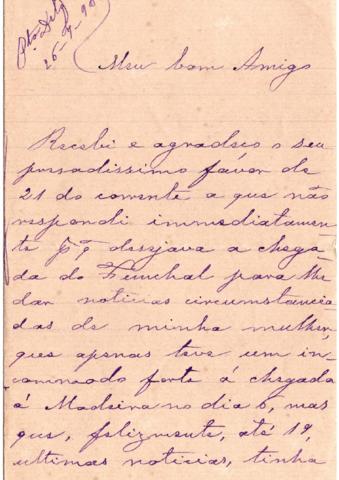 Pta Delg
26-4-90
Meu bom Amigo
Recebi e agradeço o seu
presadissimo favôr de
21 do corrente a que não
respondi immediatamen
te pq desejava a chega
da do Funchal para lhe
dar noticias circumstancia
das de minha mulher,
que apenas teve um in
commodo forte á chegada
á Madeira no dia 6, mas
que, felizmente, até 19,
ultimas noticias, tinha